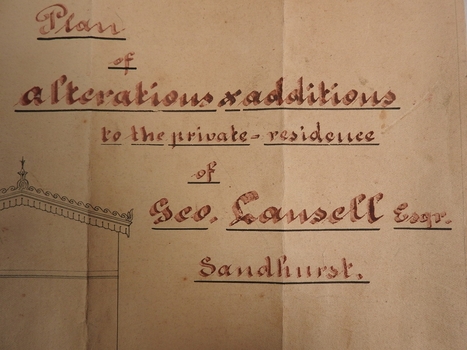 Plan
of
alterations & additions
to the private-residence
of
Geo. Lansell Esqr.
Sandhurst.